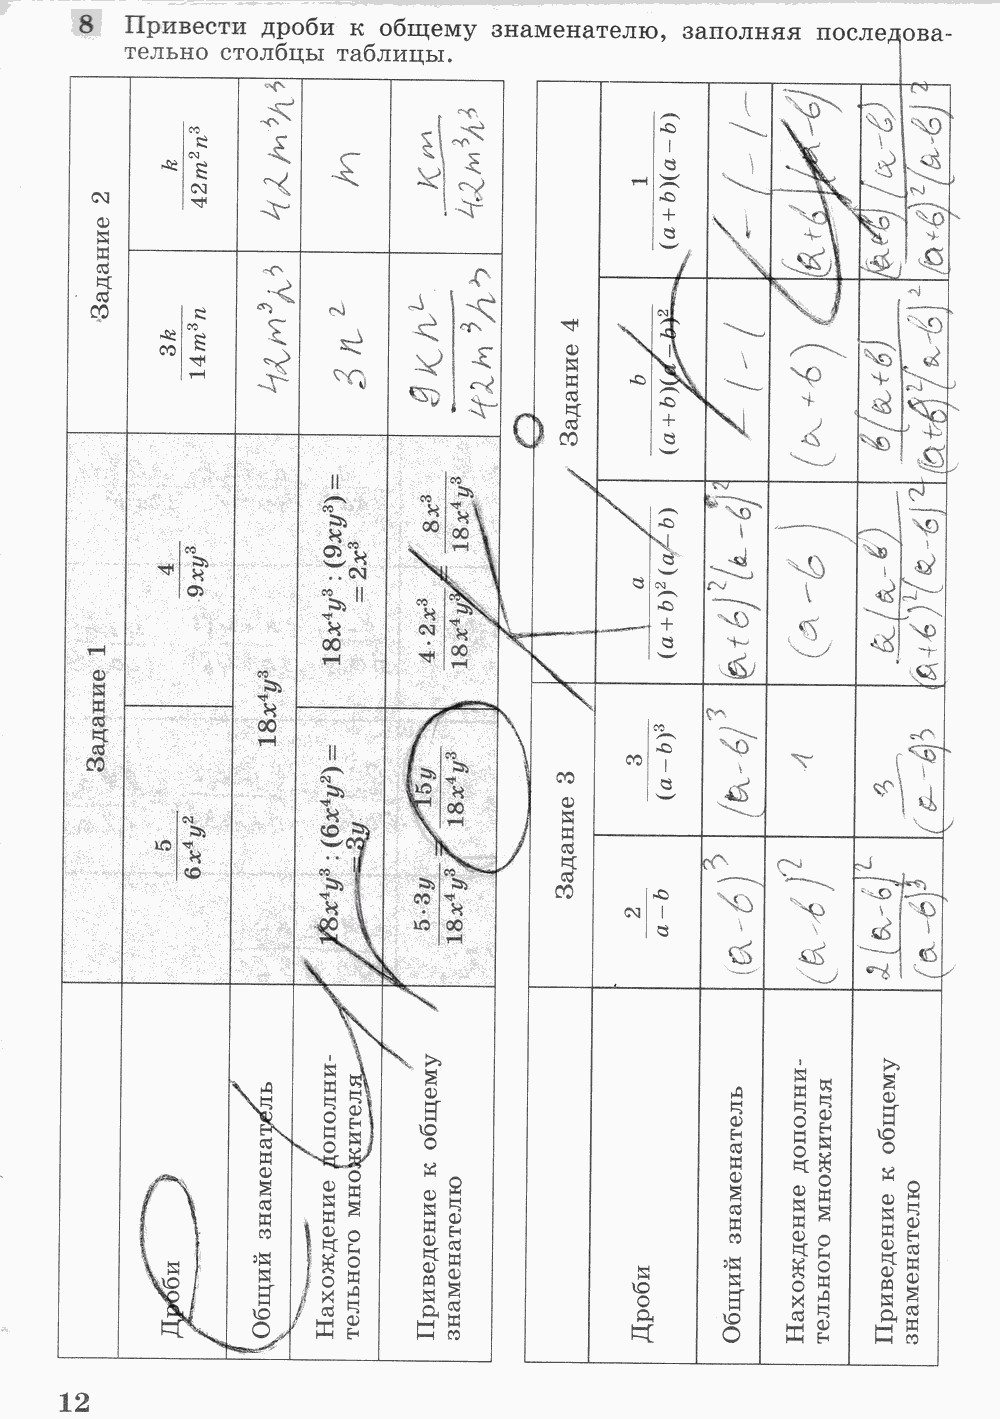 8 Привести дроби к общему знаменателю, заполняя последова-
тельно столбцы таблицы.
Задание 1
Задание 2
Дроби
5/(6x⁴y²)
4/(9xy³)
3k/(14m³n)
k/(42m²n³)
Общий знаменатель
18x⁴y³
42m³n³
42m³n³
Нахождение дополни-
тельного множителя
18x⁴y³ : (6x⁴y²) =
= 3y
18x⁴y³ : (9xy³) =
= 2x³
3n²
m
Приведение к общему
знаменателю
5·3y/(18x⁴y³) = 15y/(18x⁴y³)
4·2x³/(18x⁴y³) = 8x³/(18x⁴y³)
9kn²/(42m³n³)
km/(42m³n³)
Задание 3
Задание 4
Дроби
2/(a−b)
3/(a−b)³
a/((a+b)²(a−b))
b/((a+b)(a−b)²)
1/((a+b)(a−b))
Общий знаменатель
(a−b)³
(a−b)³
(a+b)²(a−b)²
−(−(
−(−(−
Нахождение дополни-
тельного множителя
(a−b)²
1
(a−b)
(a+b)
(a+b)(a−b)
Приведение к общему
знаменателю
2(a−b)²/(a−b)³
3/(a−b)³
a(a−b)/((a+b)²(a−b)²)
b(a+b)/((a+b)²(a−b)²)
(a+b)(a−b)/((a+b)²(a−b)²)
12